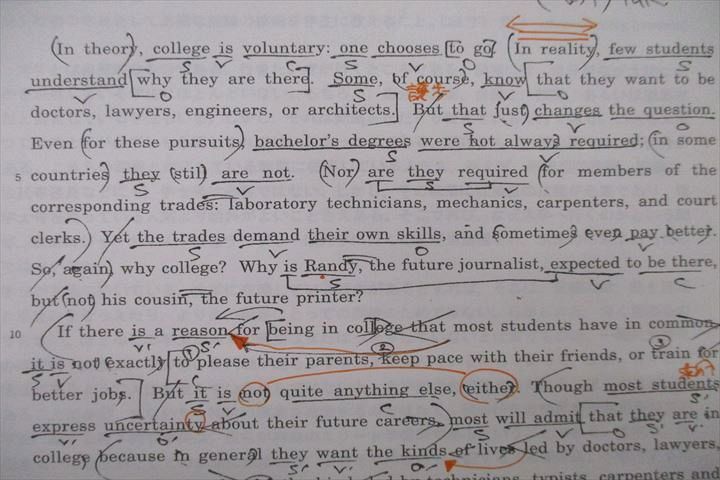 (In theory), college is voluntary: one chooses to go. (In reality), few students
understand why they are there. Some, of course, know that they want to be
doctors, lawyers, engineers, or architects. But that just changes the question.
Even for these pursuits, bachelor's degrees were not always required; (in some
5 countries) they still are not. (Nor) are they required for members of the
corresponding trades: laboratory technicians, mechanics, carpenters, and court
clerks. Yet the trades demand their own skills, and sometimes even pay better.
So, again, why college? Why is Randy, the future journalist, expected to be there,
but (not) his cousin, the future printer?
10 If there is a reason for being in college that most students have in common,
it is not exactly to please their parents, keep pace with their friends, or train for
better jobs. But it is not quite anything else, either. Though most students
express uncertainty about their future careers, most will admit that they are in
college because in general they want the kinds of lives led by doctors, lawyers,
technicians, typists, carpenters and